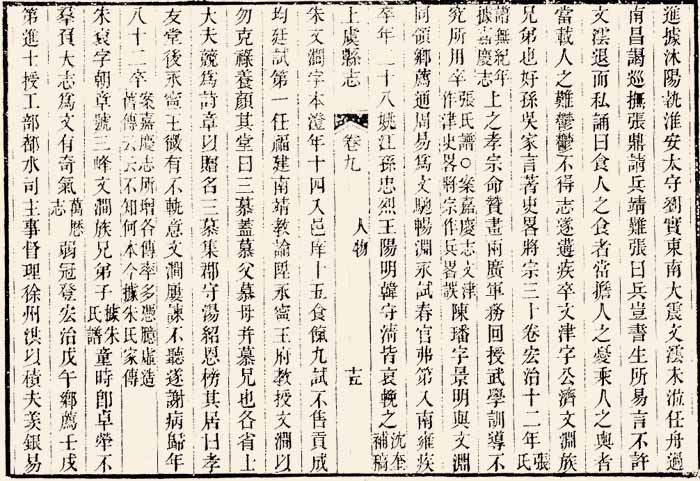 進據沭陽執淮安太守劉實東南大震文澐未涖任舟過
南昌謁巡撫張鼎請兵靖難張曰兵豈書生所易言不許
文澐退而私誦曰食人之食者當擔人之憂乘人之輿者
當載人之難鬱鬱不得志遂遘疾卒文津字公濟文淵族
兄弟也好孫吳家言著史畧將宗三十卷宏治十二年張氏
譜無紀年據嘉慶志上之孝宗命贊畫兩廣軍務回授武學訓導不
究所用卒張氏譜○案嘉慶志文津作津史畧將宗作兵畧誤陳璠字景明與文淵
同領鄉薦通周易爲文馳暢淵永試春官弗第入南雍疾
卒年二十八姚江孫忠烈王陽明韓守清皆哀輓之沈奎補稿
上虞縣志 卷九 人物
朱文澗字本澄年十四入邑庠十五食餼九試不售貢成
均廷試第一任福建南靖教諭陞永甯王府教授文澗以
勿克祿養顏其堂曰三慕蓋慕父慕母并慕兄也各省上
大夫競爲詩章以贈名三慕集郡守湯紹恩榜其居曰孝
友堂後永甯王微有不軌意文澗屢諫不聽遂謝病歸年
八十二卒案嘉慶志所增各傳率多憑臆虛造舊傳云云不知何本今據朱氏家傳
朱袞字朝章號三峰文澗族兄弟子據朱氏譜童時卽卓犖不
羣負大志爲文有奇氣萬歷志弱冠登宏治戊午鄉薦壬戌
第進士授工部都水司主事督理徐州洪以積夫羨銀易